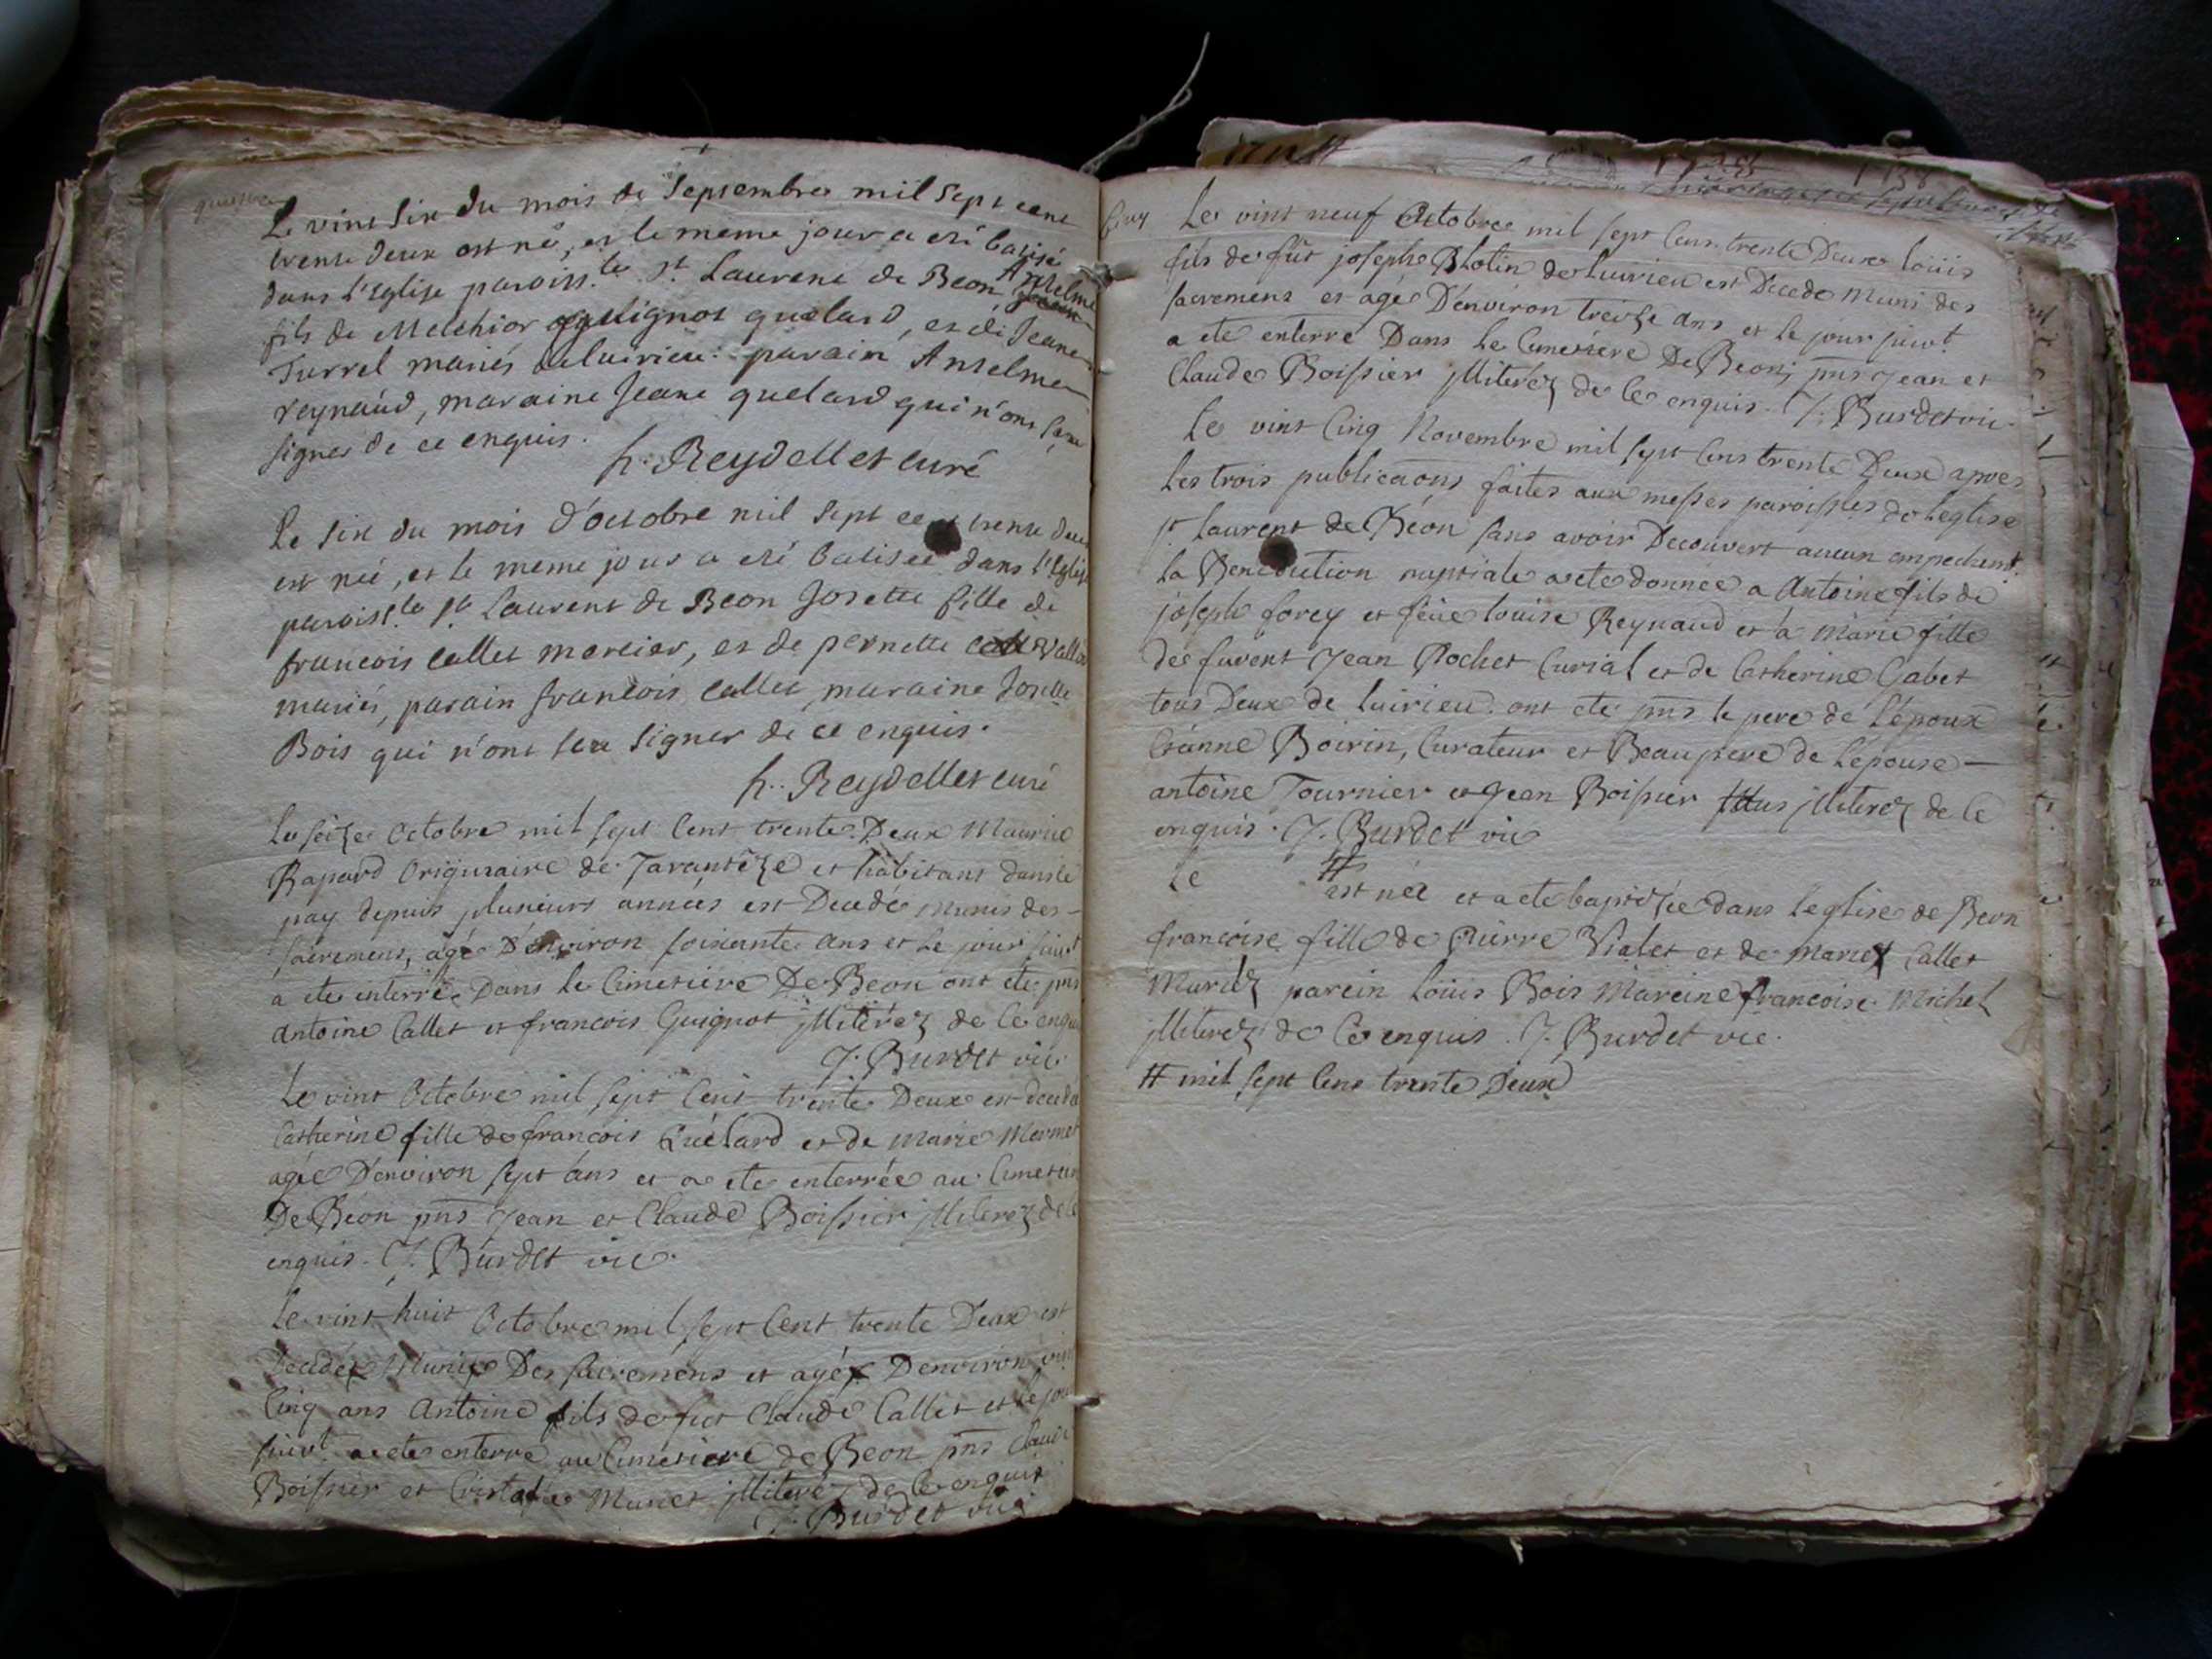 Le vint six du mois de Septembre mil sept cent
trente deux est né, et le meme jour a été batisé
dans l'Eglise paroiss.le St Laurent de Beon Anselme
fils de Melchior guignot quelard, et de Jeane
Turrel mariés de luirieu. parain Anselme
reynaud, maraine Jeane quelard qui n'ont sceu
signer de ce enquis.
h. Reydellet curé
Le six du mois d'octobre mil sept cent trente deux
est née, et le meme jour a été batisée dans l'Eglise
paroiss.le St Laurent de Beon Josette fille de
francois callet mercier, et de pernette
mariés, parain francois callet, maraine Josette
Bois qui n'ont sceu signer de ce enquis.
h. Reydellet curé
Le seize Octobre mil sept Cent trente Deux Maurice
Rapard Originaire de Taranteze et habitant dans le
pay depuis plusieurs années est Decedé Munis des
sacremens, agé D'environ soixante ans et Le jour suiut
a ete enterré Dans le Cimetiere De Beon ont ete pns
antoine Callet et francois Guignot jlliterez de Ce enquis
J. Burdet vic.
Le vint Octobre mil sept Cent trente Deux est decedée
Catherine fille de francois Quélard et de Marie Mermet
agée D'environ sept ans et a ete enterrée au Cimetiere
De Béon pns Jean et Claude Boissier jlliterez de Ce
enquis. J. Burdet vic.
Le vint huit Octobre mil sept Cent trente Deux est
Decedé Muni Des sacremens et agé D'environ vint
Cinq ans Antoine fils de fut Claude Callet et le jour
suiut. a ete enterre au Cimetiere de Beon pns Claude
Boissier et Cristofle Munet jlliterez de Ce enquis
J. Burdet vic.
Le vint neuf Octobre mil sept Cens trente Deux loüis
fils de fût joseph Blotin de luirieu est Decedé Muni des
sacremens et agé D'environ treize ans et le jour suiut
a eté enterré Dans le Cimetiere De Beon; pns Jean et
Claude Boissier jlliterez de Ce enquis. J. Burdet vic.
Le vint Cinq Novembre mil sept Cens trente Deux apres
les trois publicaons faites aux messes paroissles de leglise
St laurent de Béon sans avoir Decouvert aucun empechemt.
la Benediction nuptiale a ete donnée a Antoine fils de
joseph forey et feüe louise Reynaud et a Marie fille
de Jean Rochet Curial et de Catherine Gabet
tous Deux de luirieu. ont ete pns le pere de l'époux
Boirin, Curateur et Beaupere de l'épouse
antoine Tournier et Jean Boissier tous jlliterez de Ce
enquis. J. Burdet vic
Le # est née et a ete baptisée dans leglise de Beon
francoise fille de Pierre Vialet et de Marie Callet
Mariez parein Loüis Bois Mareine francoise Michel
jlliterez de Ce enquis. J. Burdet vic.
# mil sept Cens trente Deux